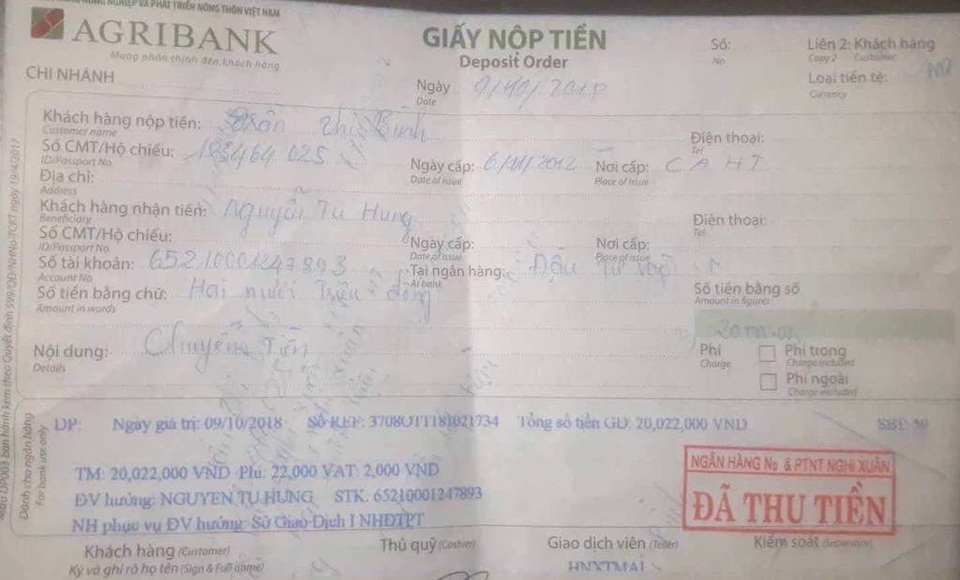 NGHIỆP VÀ PHÁT TRIỂN NÔNG THÔN VIỆT NAM
AGRIBANK
Mang phồn thịnh đến khách hàng
CHI NHÁNH
GIẤY NỘP TIỀN
Deposit Order
Ngày 9/10/2018
Date
Số:
No
Liên 2: Khách hàng
Copy 2 Customer
Loại tiền tệ:
Currency
Khách hàng nộp tiền: Trần Thị Bình
Customer name
Điện thoại:
Tel
Số CMT/Hộ chiếu: 183464025 Ngày cấp: 2012 Nơi cấp: CAHT
ID/Passport No Date of issue Place of issue
Địa chỉ:
Address
Khách hàng nhận tiền: Nguyễn Tu Hung
Beneficiary
Điện thoại:
Tel
Số CMT/Hộ chiếu: Ngày cấp: Nơi cấp:
ID/Passport No Date of issue Place of issue
Số tài khoản: 65210001247893 Tại ngân hàng: Đầu tư
Account No At bank
Số tiền bằng chữ: Hai mươi Triệu đồng
Amount in words
Số tiền bằng số
Amount in figures
Nội dung: Chuyển Tiền
Details
Phí
Charge
Phí trong
Charge included
Phí ngoài
Charge excluded
Mẫu DP003 ban hành kèm theo Quyết định 599/QĐ/NHNo-TCKT ngày 19/4/2017
Dành cho ngân hàng
For bank use only
DP: Ngày giá trị: 09/10/2018 Số REF: 3708OTT181021734 Tổng số tiền GD: 20,022,000 VND
TM: 20,022,000 VND Phí: 22,000 VAT: 2,000 VND
ĐV hưởng: NGUYEN TU HUNG STK: 65210001247893
NH phục vụ ĐV hưởng: Sở Giao Dịch I NHĐTPT
NGÂN HÀNG No & PTNT NGHI XUÂN
ĐÃ THU TIỀN
Khách hàng (Customer) Thủ quỹ (Cashier) Giao dịch viên (Teller) Kiểm soát (Supervisor)
Ký và ghi rõ họ tên (Sign & Full name)